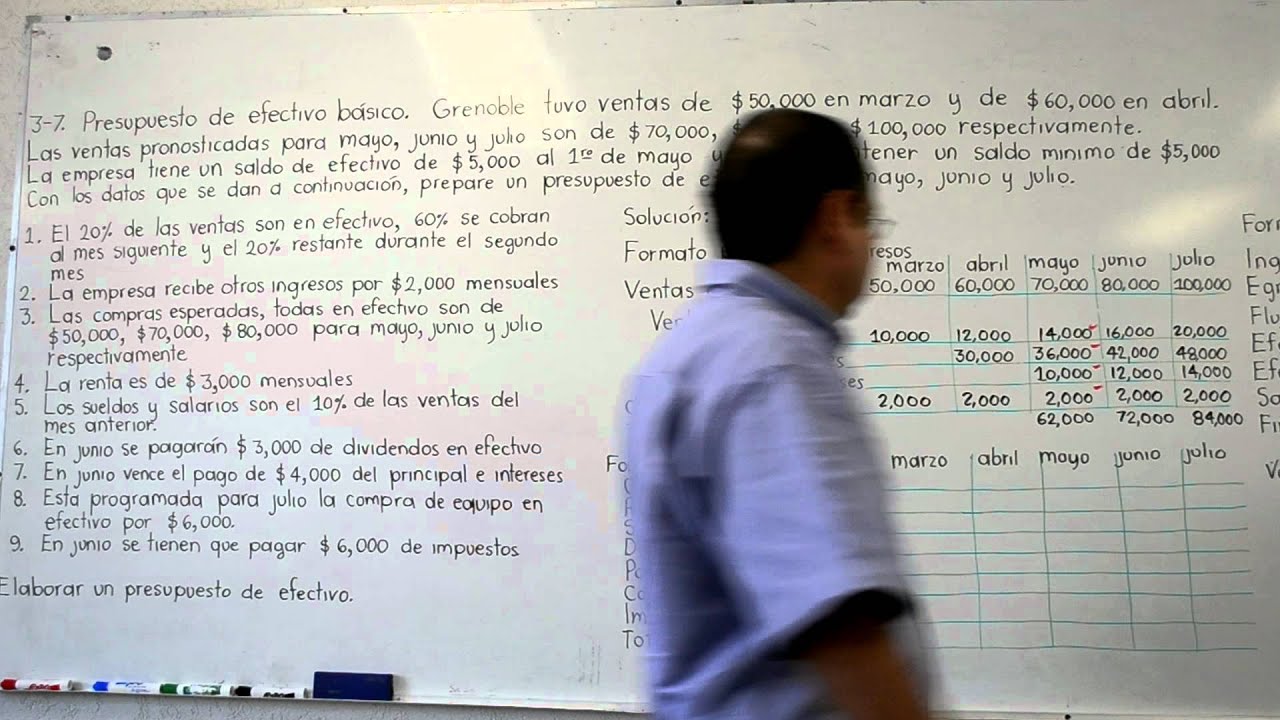 3-7. Presupuesto de efectivo básico. Grenoble tuvo ventas de $50,000 en marzo y de $60,000 en abril.
Las ventas pronosticadas para mayo, junio y julio son de $70,000, $100,000 respectivamente.
La empresa tiene un saldo de efectivo de $5,000 al 1ro de mayo y tener un saldo minimo de $5,000
Con los datos que se dan a continuación, prepare un presupuesto de mayo, junio y julio.
1. El 20% de las ventas son en efectivo, 60% se cobran
al mes siguiente y el 20% restante durante el segundo
mes
2. La empresa recibe otros ingresos por $2,000 mensuales
3. Las compras esperadas, todas en efectivo son de
$50,000, $70,000, $80,000 para mayo, junio y julio
respectivamente
4. La renta es de $3,000 mensuales
5. Los sueldos y salarios son el 10% de las ventas del
mes anterior.
6. En junio se pagarán $3,000 de dividendos en efectivo
7. En junio vence el pago de $4,000 del principal e intereses
8. Esta programada para julio la compra de equipo en
efectivo por $6,000.
9. En junio se tienen que pagar $6,000 de impuestos
Elaborar un presupuesto de efectivo.
Solución:
Formato resos
marzo abril mayo junio julio
Ventas 50,000 60,000 70,000 80,000 100,000
10,000 12,000 14,000 16,000 20,000
30,000 36,000 42,000 48,000
10,000 12,000 14,000
2,000 2,000 2,000 2,000 2,000
62,000 72,000 84,000
marzo abril mayo junio julio